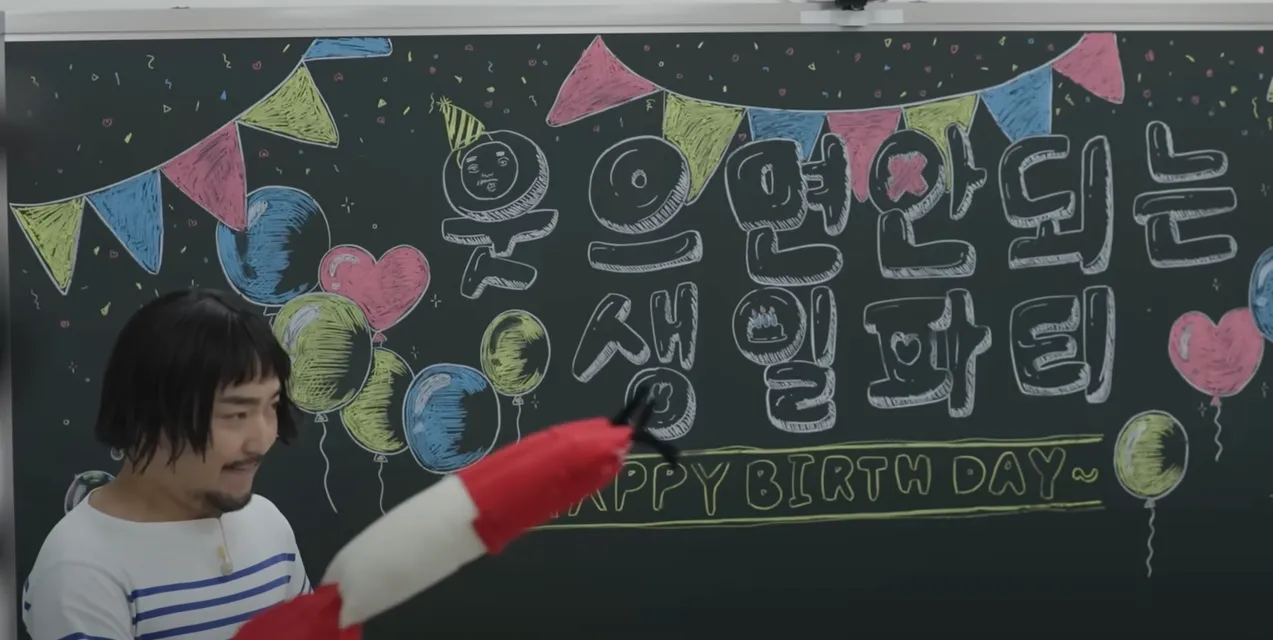 웃으면안되는
생일파티
HAPPY BIRTH DAY~